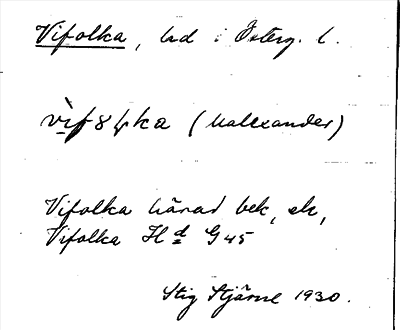 Vifolka, hd i Österg. l.
vif8ļka (Malexander)
Vifolka härad bek, ek,
Vifolka Hd G 45
Stig Stjärne 1930.